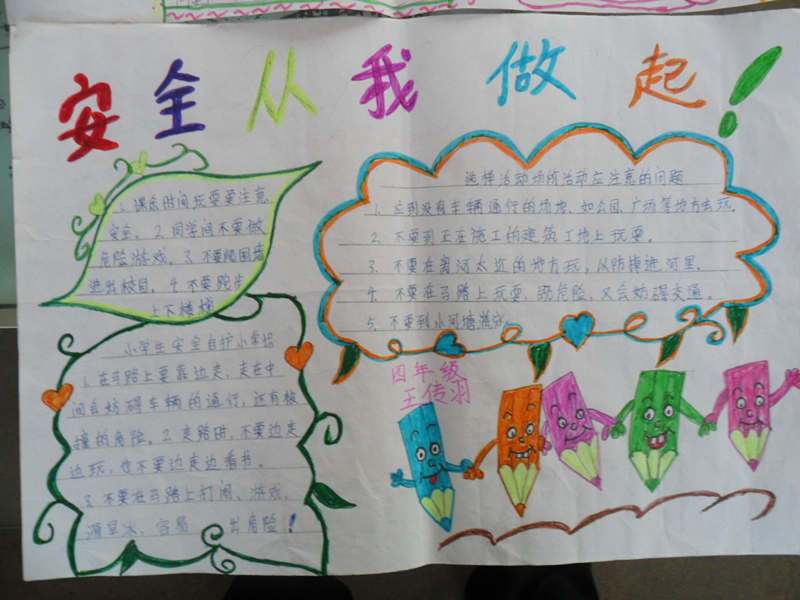 安全从我做起!
1. 课余时间玩耍要注意
安全。2. 同学间不要做
危险游戏。3. 不要爬围墙
进出校园。4. 不要跑步
上下楼梯
选择活动场所活动应注意的问题
1. 应到没有车辆通行的场地,如公园、广场等地方去玩。
2. 不要到正在施工的建筑工地上玩耍。
3. 不要在离河太近的地方玩,以防掉进河里。
4. 不要在马路上玩耍,既危险,又会妨碍交通。
5. 不要到小河塘游戏。
小学生安全自护小常识
1. 在马路上要靠边走,走在中
间会妨碍车辆的通行,还有被
撞的危险。2. 走路时,不要边走
边玩,也不要边走边看书。
3. 不要在马路上打闹、游戏、
滑旱冰,容易 出危险!
四年级
王传羽